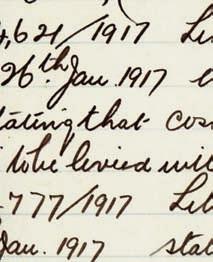 4,621/1917 Le
26th. Jan. 1917
tating that cos
to be levied wit
777/1917 Let
Jan. 1917 stat